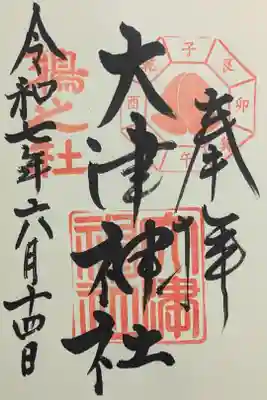 奉拝
大津神社
令和七年六月十四日
子
艮
卯
午
酉
之社
大津神社